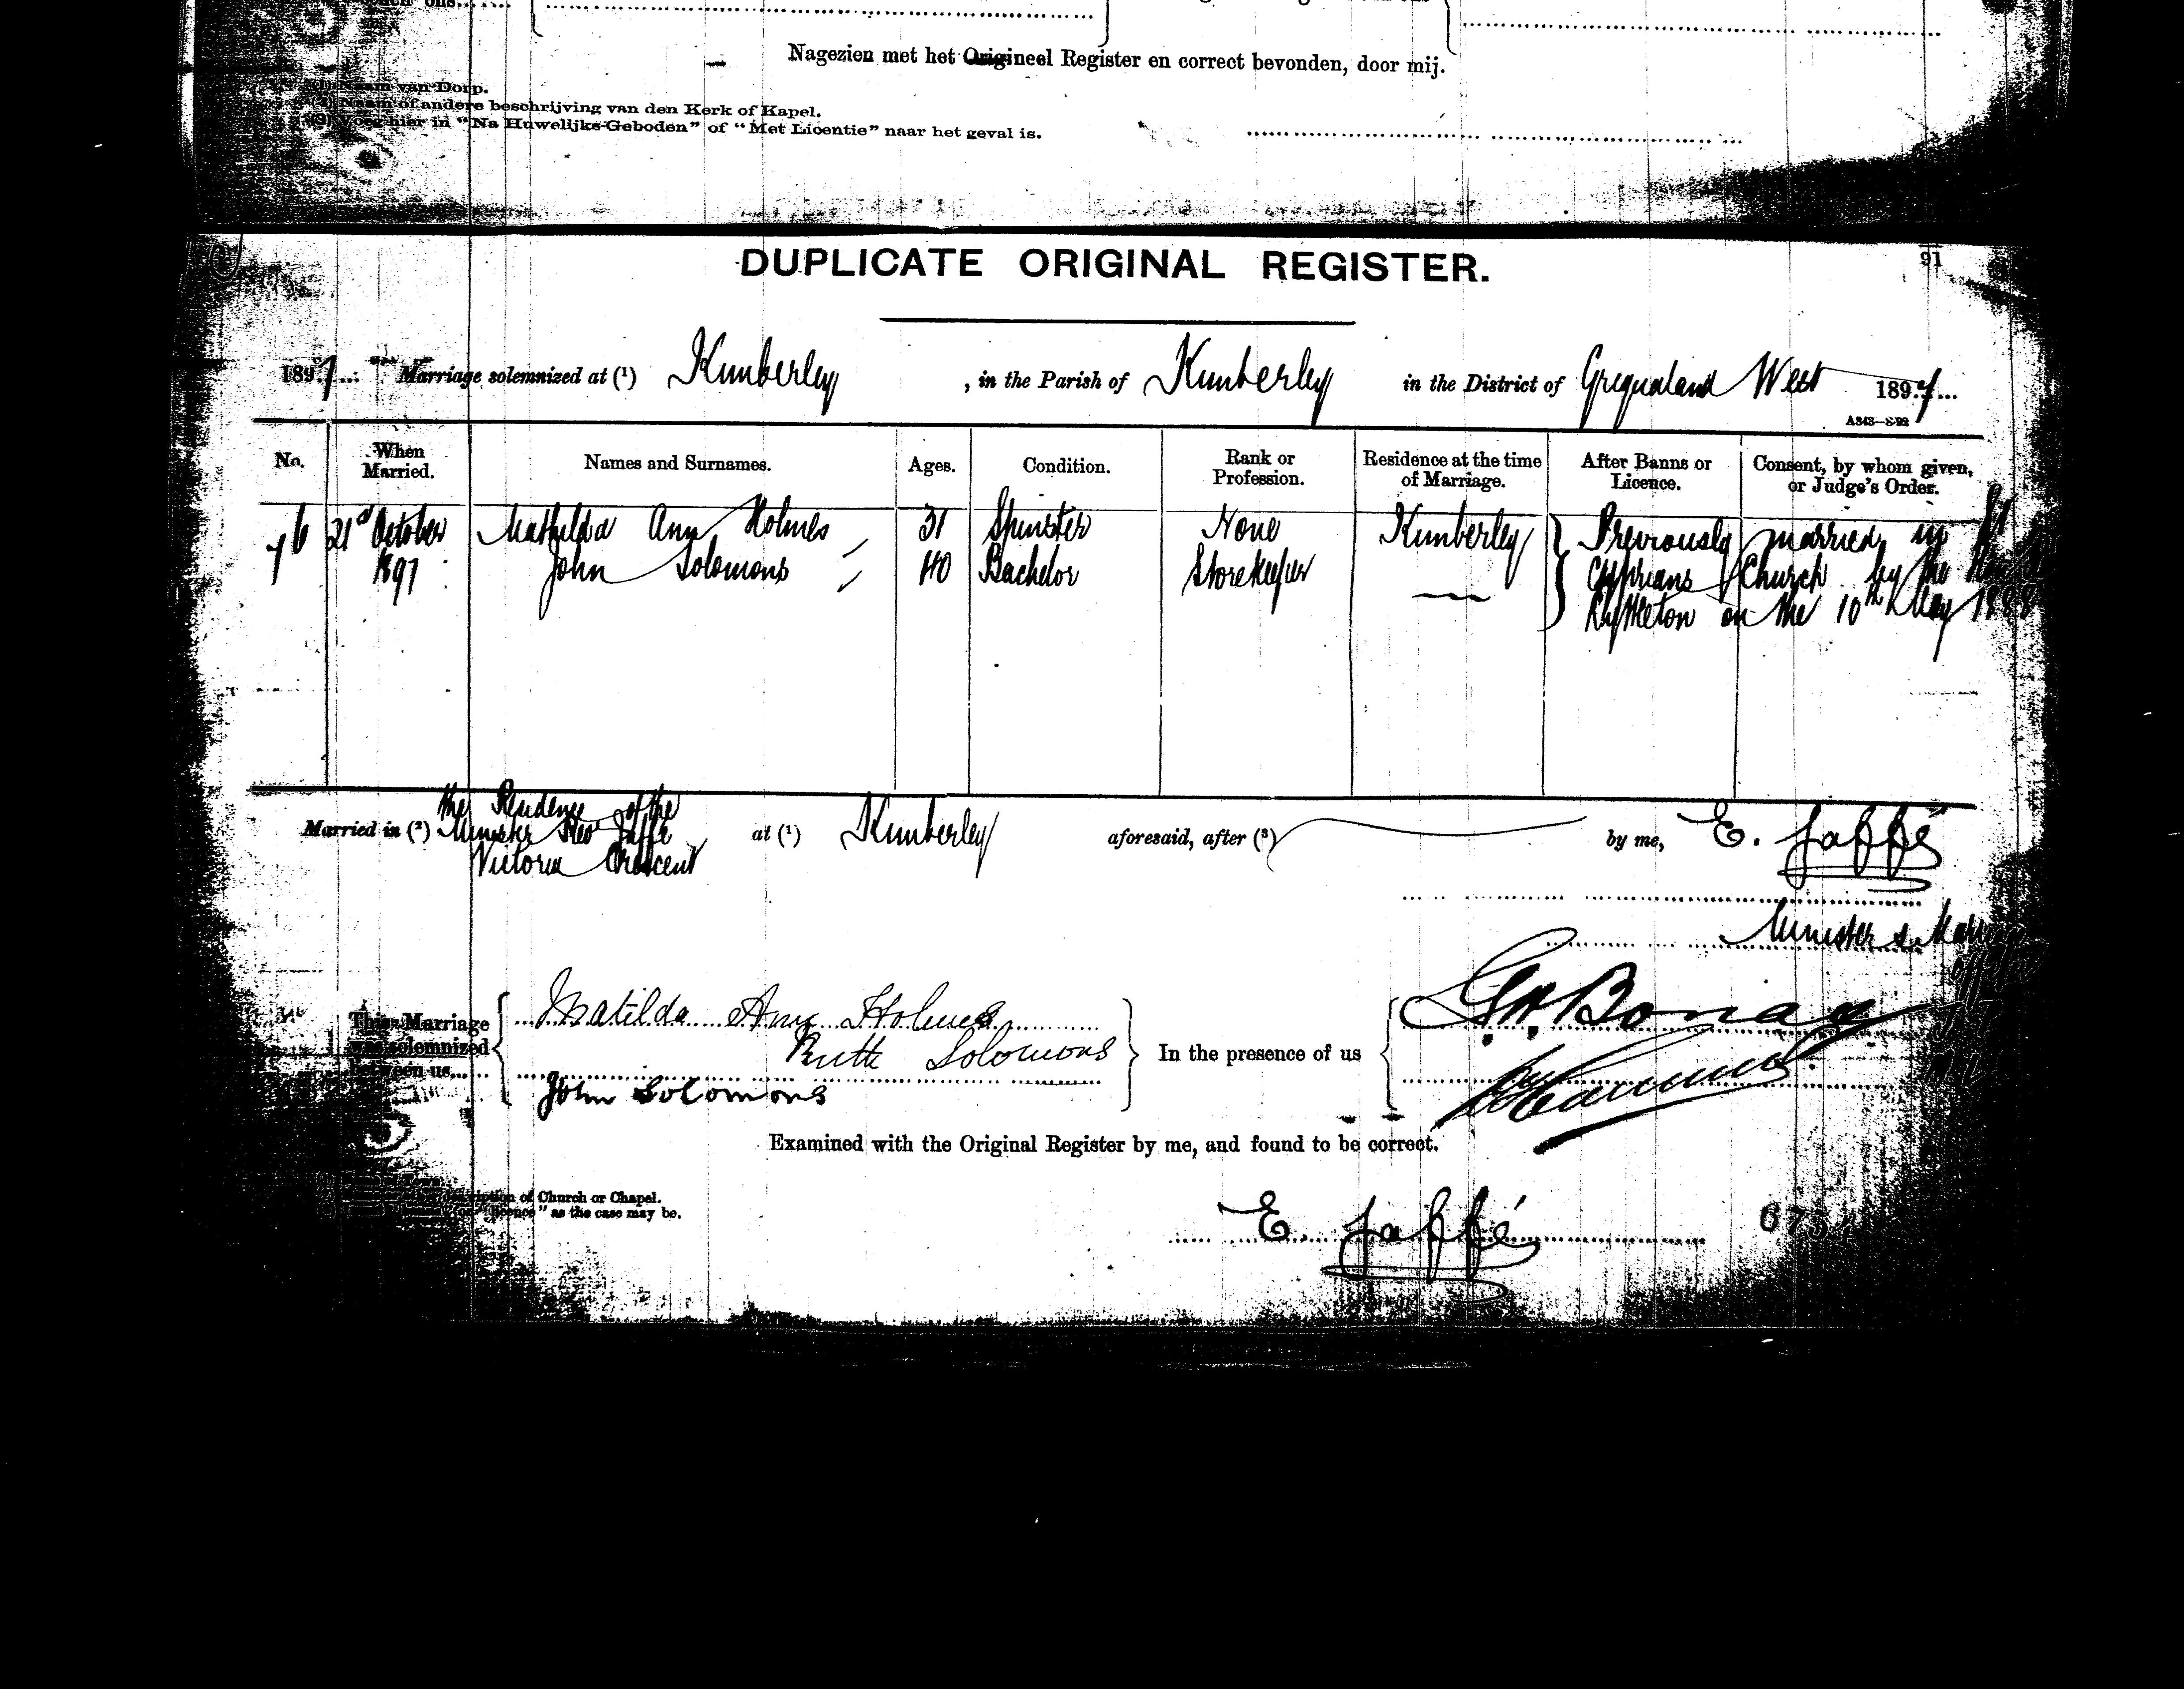 Nagezien met het Origineel Register en correct bevonden, door mij.
(1) Naam van Dorp.
(2) Naam of andere beschrijving van den Kerk of Kapel.
(3) Voeg hier in "Na Huwelijks-Geboden" of "Met Licentie" naar het geval is.
DUPLICATE ORIGINAL REGISTER.
91
1897 Marriage solemnized at (1) Kimberley, in the Parish of Kimberley in the District of Griqualand West 1897
A343—S-92
No. When Married. Names and Surnames. Ages. Condition. Rank or Profession. Residence at the time of Marriage. After Banns or Licence. Consent, by whom given, or Judge's Order.
76 21st October Mathilda Ann Holmes 31 Spinster None Kimberley } Previously married in St
1897 John Solomons 40 Bachelor Storekeeper — Cyprians Church by the
on the 10th May 1888
the Residence of the
Married in (2) Minister Rev Jaffé at (1) Kimberley aforesaid, after (3) by me, E. Jaffé
Victoria Crescent
Minister &
This Marriage was solemnized between us, { Matilda Ann Holmes
Ruth Solomons
John Solomons } In the presence of us {
Examined with the Original Register by me, and found to be correct.
of Church or Chapel.
licence" as the case may be.
E. Jaffé